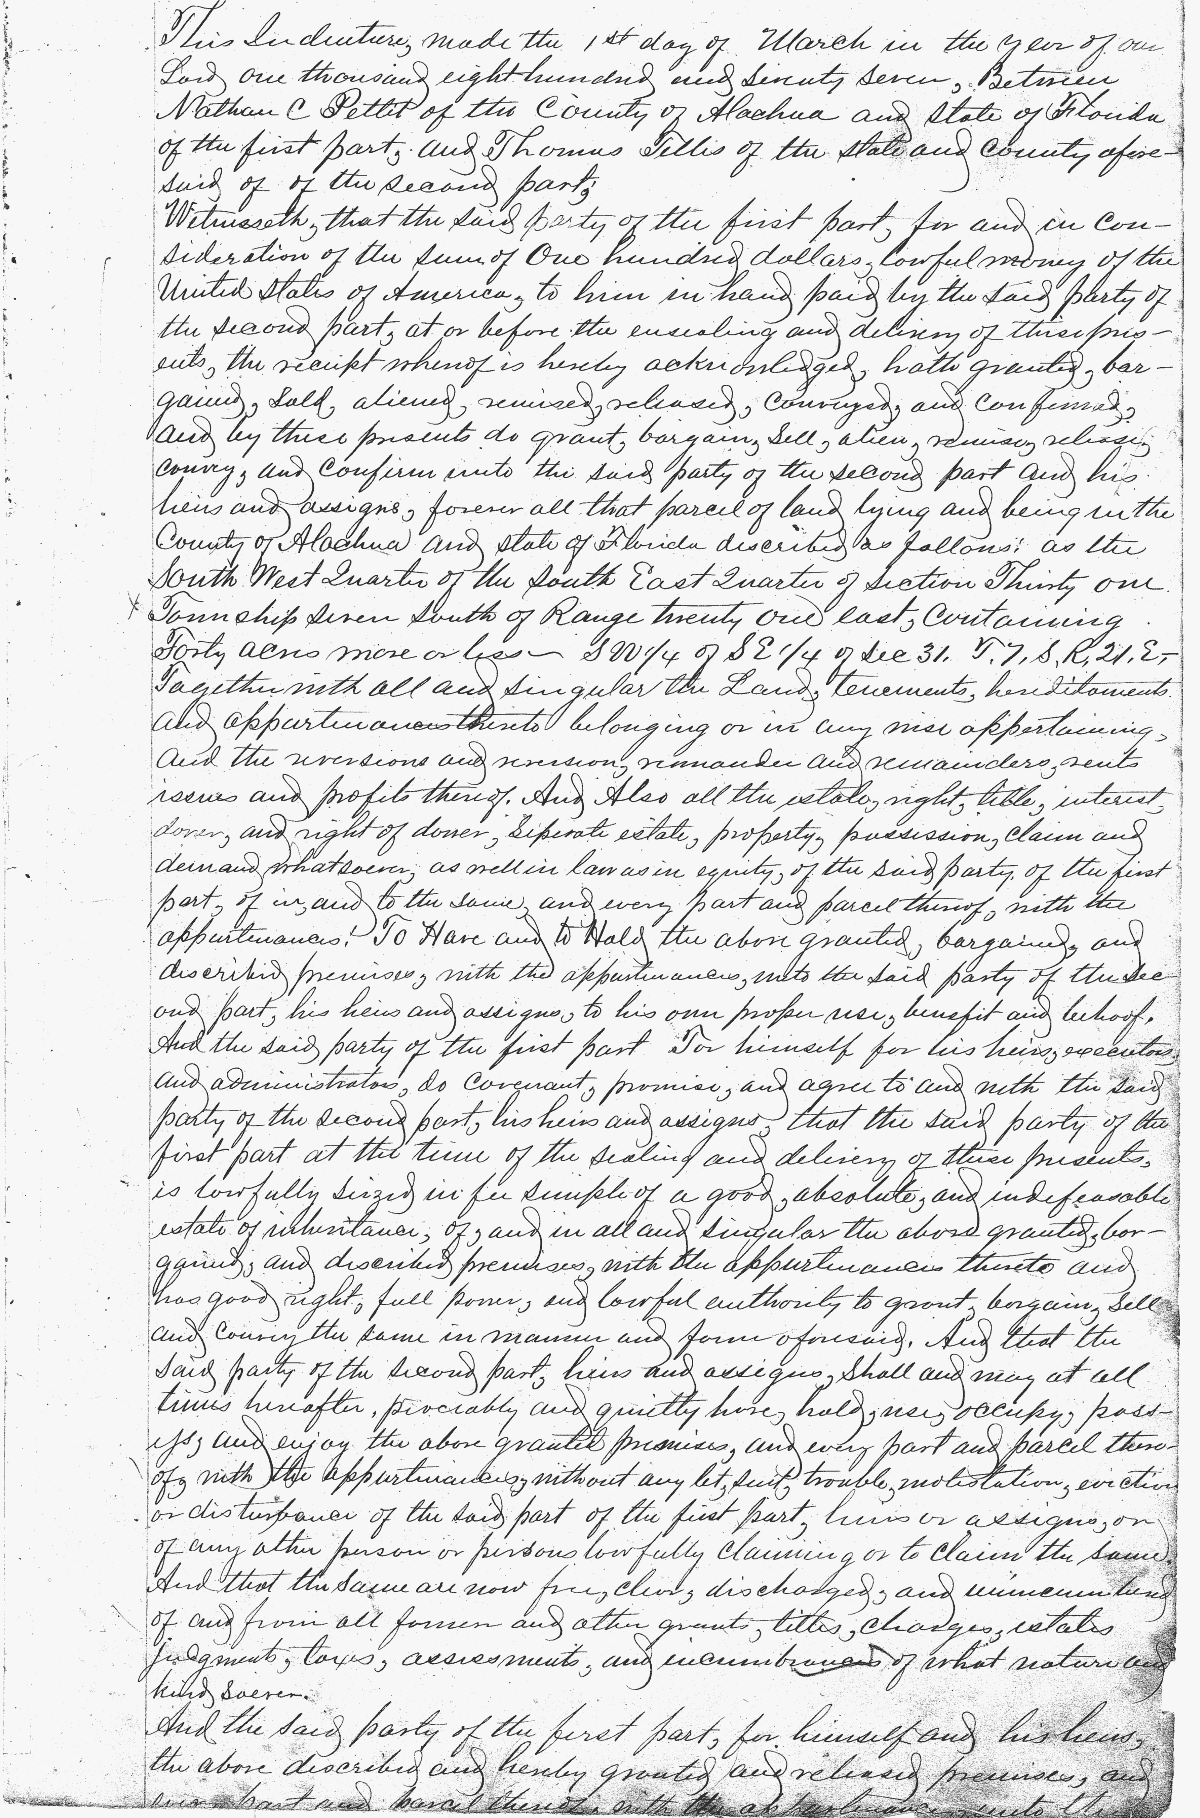 This Indenture, made the 1st day of March in the year of our
Lord one thousand eight hundred and seventy seven, Between
Nathan C Pettit of the County of Alachua and State of Florida
of the first part, and Thomas Tillis of the state and county afore-
said of of the second part;
Witnesseth, that the said party of the first part, for and in con-
sideration of the sum of One hundred dollars, lawful money of the
United States of America, to him in hand paid by the said party of
the second part, at or before the ensealing and delivery of these pres-
ents, the receipt whereof is hereby acknowledged, hath granted, bar-
gained, sold, aliened, remised, released, conveyed, and confirmed,
and by these presents do grant, bargain, sell, alien, remise, release,
convey, and confirm unto the said party of the second part and his
heirs and assigns, forever all that parcel of land lying and being in the
County of Alachua and state of Florida described as follows: as the
South West Quarter of the South East Quarter of Section Thirty one
Township seven South of Range twenty one east, Containing
Forty acres more or less — SW 1/4 of SE 1/4 of Sec 31. T. 7, S, R, 21. E,-
Together with all and singular the Land, tenements, hereditaments
and appurtenances thereto belonging or in any wise appertaining,
and the reversions and reversion, remainder and remainders, rents
issues and profits thereof. And Also all the estate, right, title, interest,
dower, and right of dower, seperate estate, property, possession, claim and
demand whatsoever, as well in law as in equity, of the said party, of the first
part, of in, and to the same, and every part and parcel thereof, with the
appurtenances: To Have and to Hold the above granted, bargained, and
described premises, with the appurtenances, unto the said party of the sec
ond part, his heirs and assigns, to his own proper use, benefit and behoof.
And the said party of the first part For himself for his heirs, executors
and administrators, do covenant, promise, and agree to and with the said
party of the second part, his heirs and assigns, that the said party of the
first part at the time of the sealing and delivery of these presents,
is lawfully seized in fee simple of a good, absolute, and indefeasable
estate of inheritance, of, and in all and singular the above granted, bar-
gained, and described premises, with the appurtenances thereto and
has good right, full power, and lawful authority to grant, bargain, sell
and convey the same in manner and form aforesaid. And that the
said party of the second part, heirs and assigns, shall and may at all
times hereafter, peaceably and quietly have, hold, use, occupy, poss-
ess, and enjoy the above granted premises, and every part and parcel there-
of, with the appurtenances, without any let, suit, trouble, molistation, eviction
or disturbance of the said part of the first part, heirs or assigns, or
of any other person or persons lawfully claiming or to claim the same.
And that the same are now free, clear, discharged, and unincumbered
of and from all former and other grants, titles, charges, estates
judgments, taxes, assessments, and incumbrances of what nature and
kind soever.
And the said party of the first part, for himself and his heirs,
the above described and hereby granted and released premises, and
every part and parcel thereof, with the appurtenances unto the